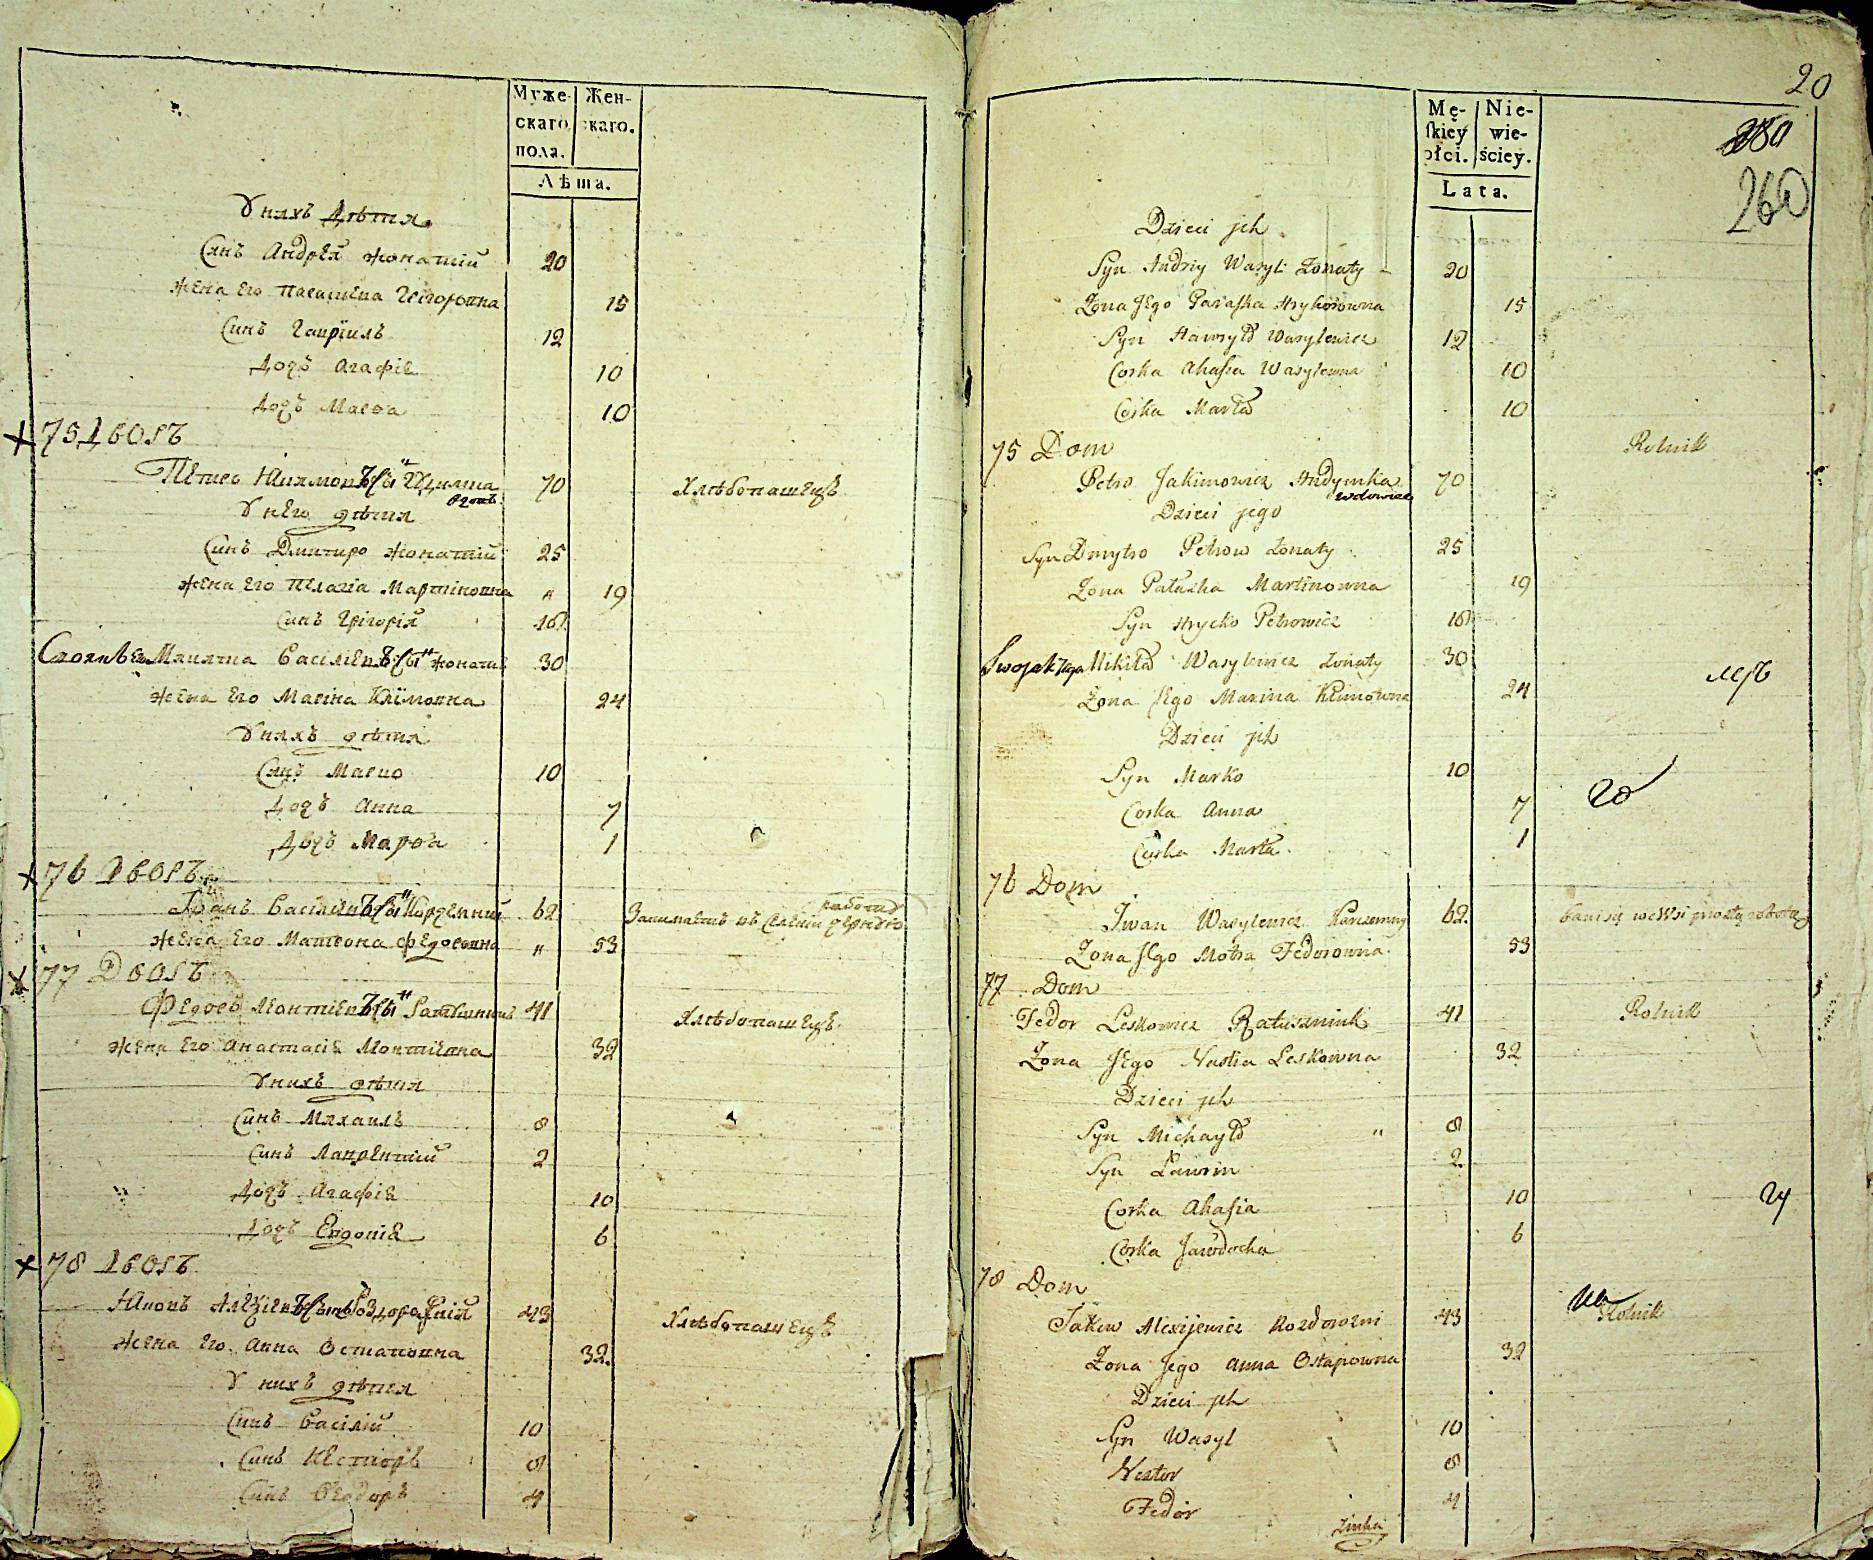 Муже-
скаго
пола.
Жен-
скаго.
Лѣта.
У нихъ дѣти
Синъ Андрей жонатій 20
жена Его Параскева Григоровна 15
Синъ Гавріилъ 12
Дочъ Агафіа 10
Дочъ Марѳа 10
75 Дворъ
Петръ Якимовъ сы'' 70 Хлѣбопашецъ
вдовъ
У него дѣти
Синъ Дмитро жонатій 25
жена Его Пелагіа Мартіновна " 19
Синъ Григорій 16
Своякъ Его Микита Василіевъ сы'' жонатій 30
жена Его Марина Клімовна 24
У нихъ дѣти
Синъ Марко 10
Дочъ Анна 7
Дочъ Марѳа 1
76 Дворъ
Іванъ Василіевъ сы'' 62 Занимаетъ въ селеніи черною
работою
жена Его Матрона Федоровна " 53
77 Дворъ
Федоръ Леонтіевъ сы'' 41 Хлѣбопашецъ
жена Его Анастасіа Леонтіевна 32
У нихъ дѣти
Синъ Михаилъ 8
Синъ Лаврентій 2
Дочъ Агафіа 10
Дочъ Евдокіа 6
78 Дворъ
Яковъ Алеѯіевъ сынъ 43 Хлѣбопашецъ
жена Его Анна Остаповна 32
У нихъ дѣти
Синъ Василій 10
Синъ Несторъ 8
Синъ Ѳеодоръ 4
20
260
Mę-
skiey
płci.
Nie-
wie-
ściey.
Lata.
Dzieci jch
Syn Andriy Wasyl: żonaty 20
Żona Jego Paraska Hryhorowna 15
Syn Hawryło Wasylewicz 12
Corka Ahafia Wasylewna 10
Corka Marta 10
75 Dom Rolnik
Petro Jakimowicz Hudymka 70
wdowiec
Dzieci jego
Syn Dmytro Petrow żonaty 25
Żona Palaszka Martinowna 19
Syn Hrycko Petrowicz 16
Swojak Jego Mikita Wasylewicz żonaty 30
Żona Jego Marina Klimowna 24
Dzieci jch
Syn Marko 10
Corka Anna 7
Corka Marta 1
76 Dom
Iwan Wasylewicz 62 bawi się we Wsi prostą robotą
Żona Jego Motra Fedorowna 53
77 Dom
Fedor Leskowicz Ratuszniuk 41 Rolnik
Żona Jego Nastia Leskowna 32
Dzieci jch
Syn Michayło " 8
Syn Ławrin 2
Corka Ahafia 10
Corka Jawdocha 6
78 Dom
Jakow Alexijewicz Rozdorozni 43 Rolnik
Żona Jego Anna Ostapowna 32
Dzieci jch
Syn Wasyl 10
Nestor 8
Fedor 4